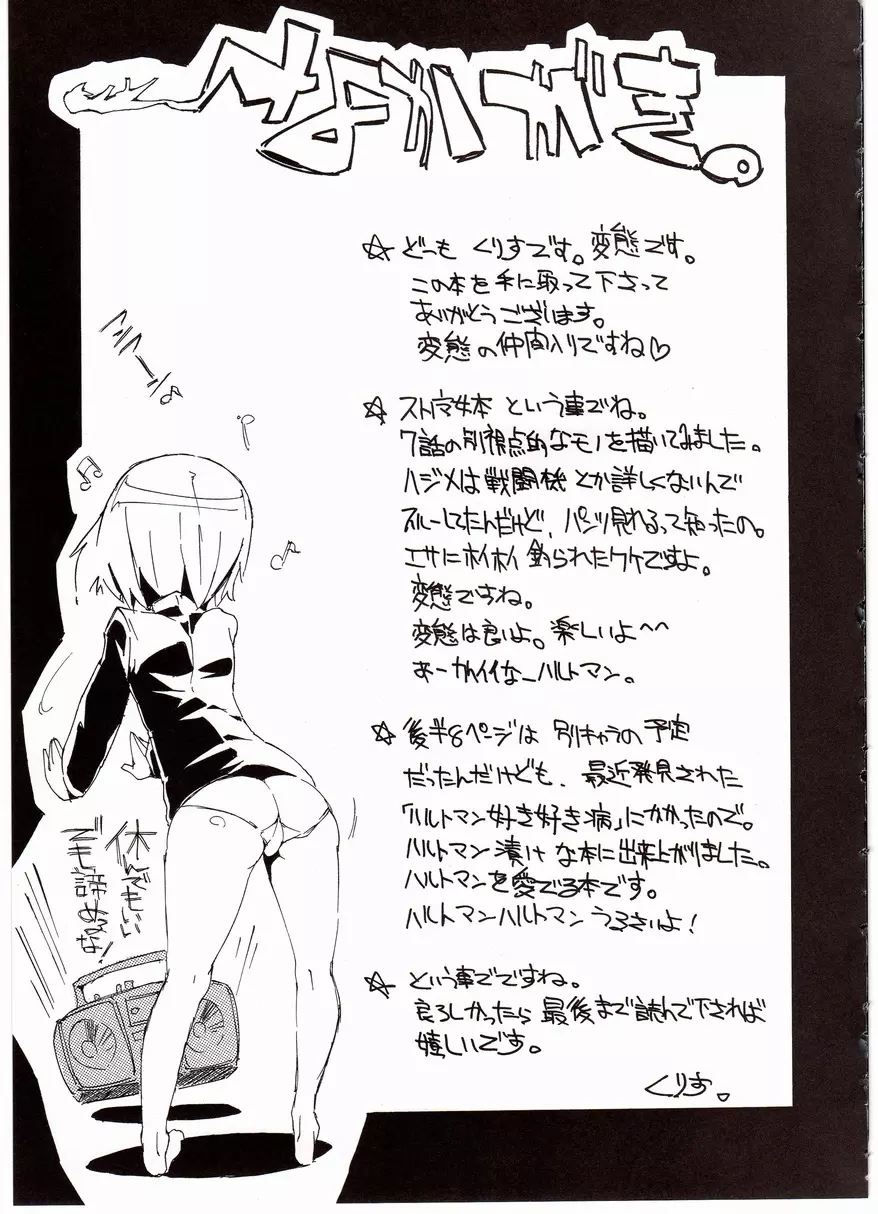 なかがき。
☆ どーも くりすです。変態です。
この本を手に取って下さって
ありがとうございます。
変態の仲間入りですね♡
☆ ストパン本 という事でね。
7話の別視点的なモノを描いてみました。
ハジメは戦闘機とか詳しくないんで
スルーしてたんだけど、パンツ見れるって知ったの。
エサにホイホイ釣られたワケですよ。
変態ですね。
変態は良いよ。楽しいよ〜〜
あーかわイイなーハルトマン。
☆ 後半8ページは 別キャラの予定
だったんだけども、最近発見された
「ハルトマン好き好き病」にかかったので。
ハルトマン漬けな本に出来上がりました。
ハルトマンを愛でる本です。
ハルトマンハルトマンうるさいよ!
☆ という事でですね。
良ろしかったら最後まで読んで下されば
嬉しいです。
くりす。
休んでもいい
でも諦めんな!